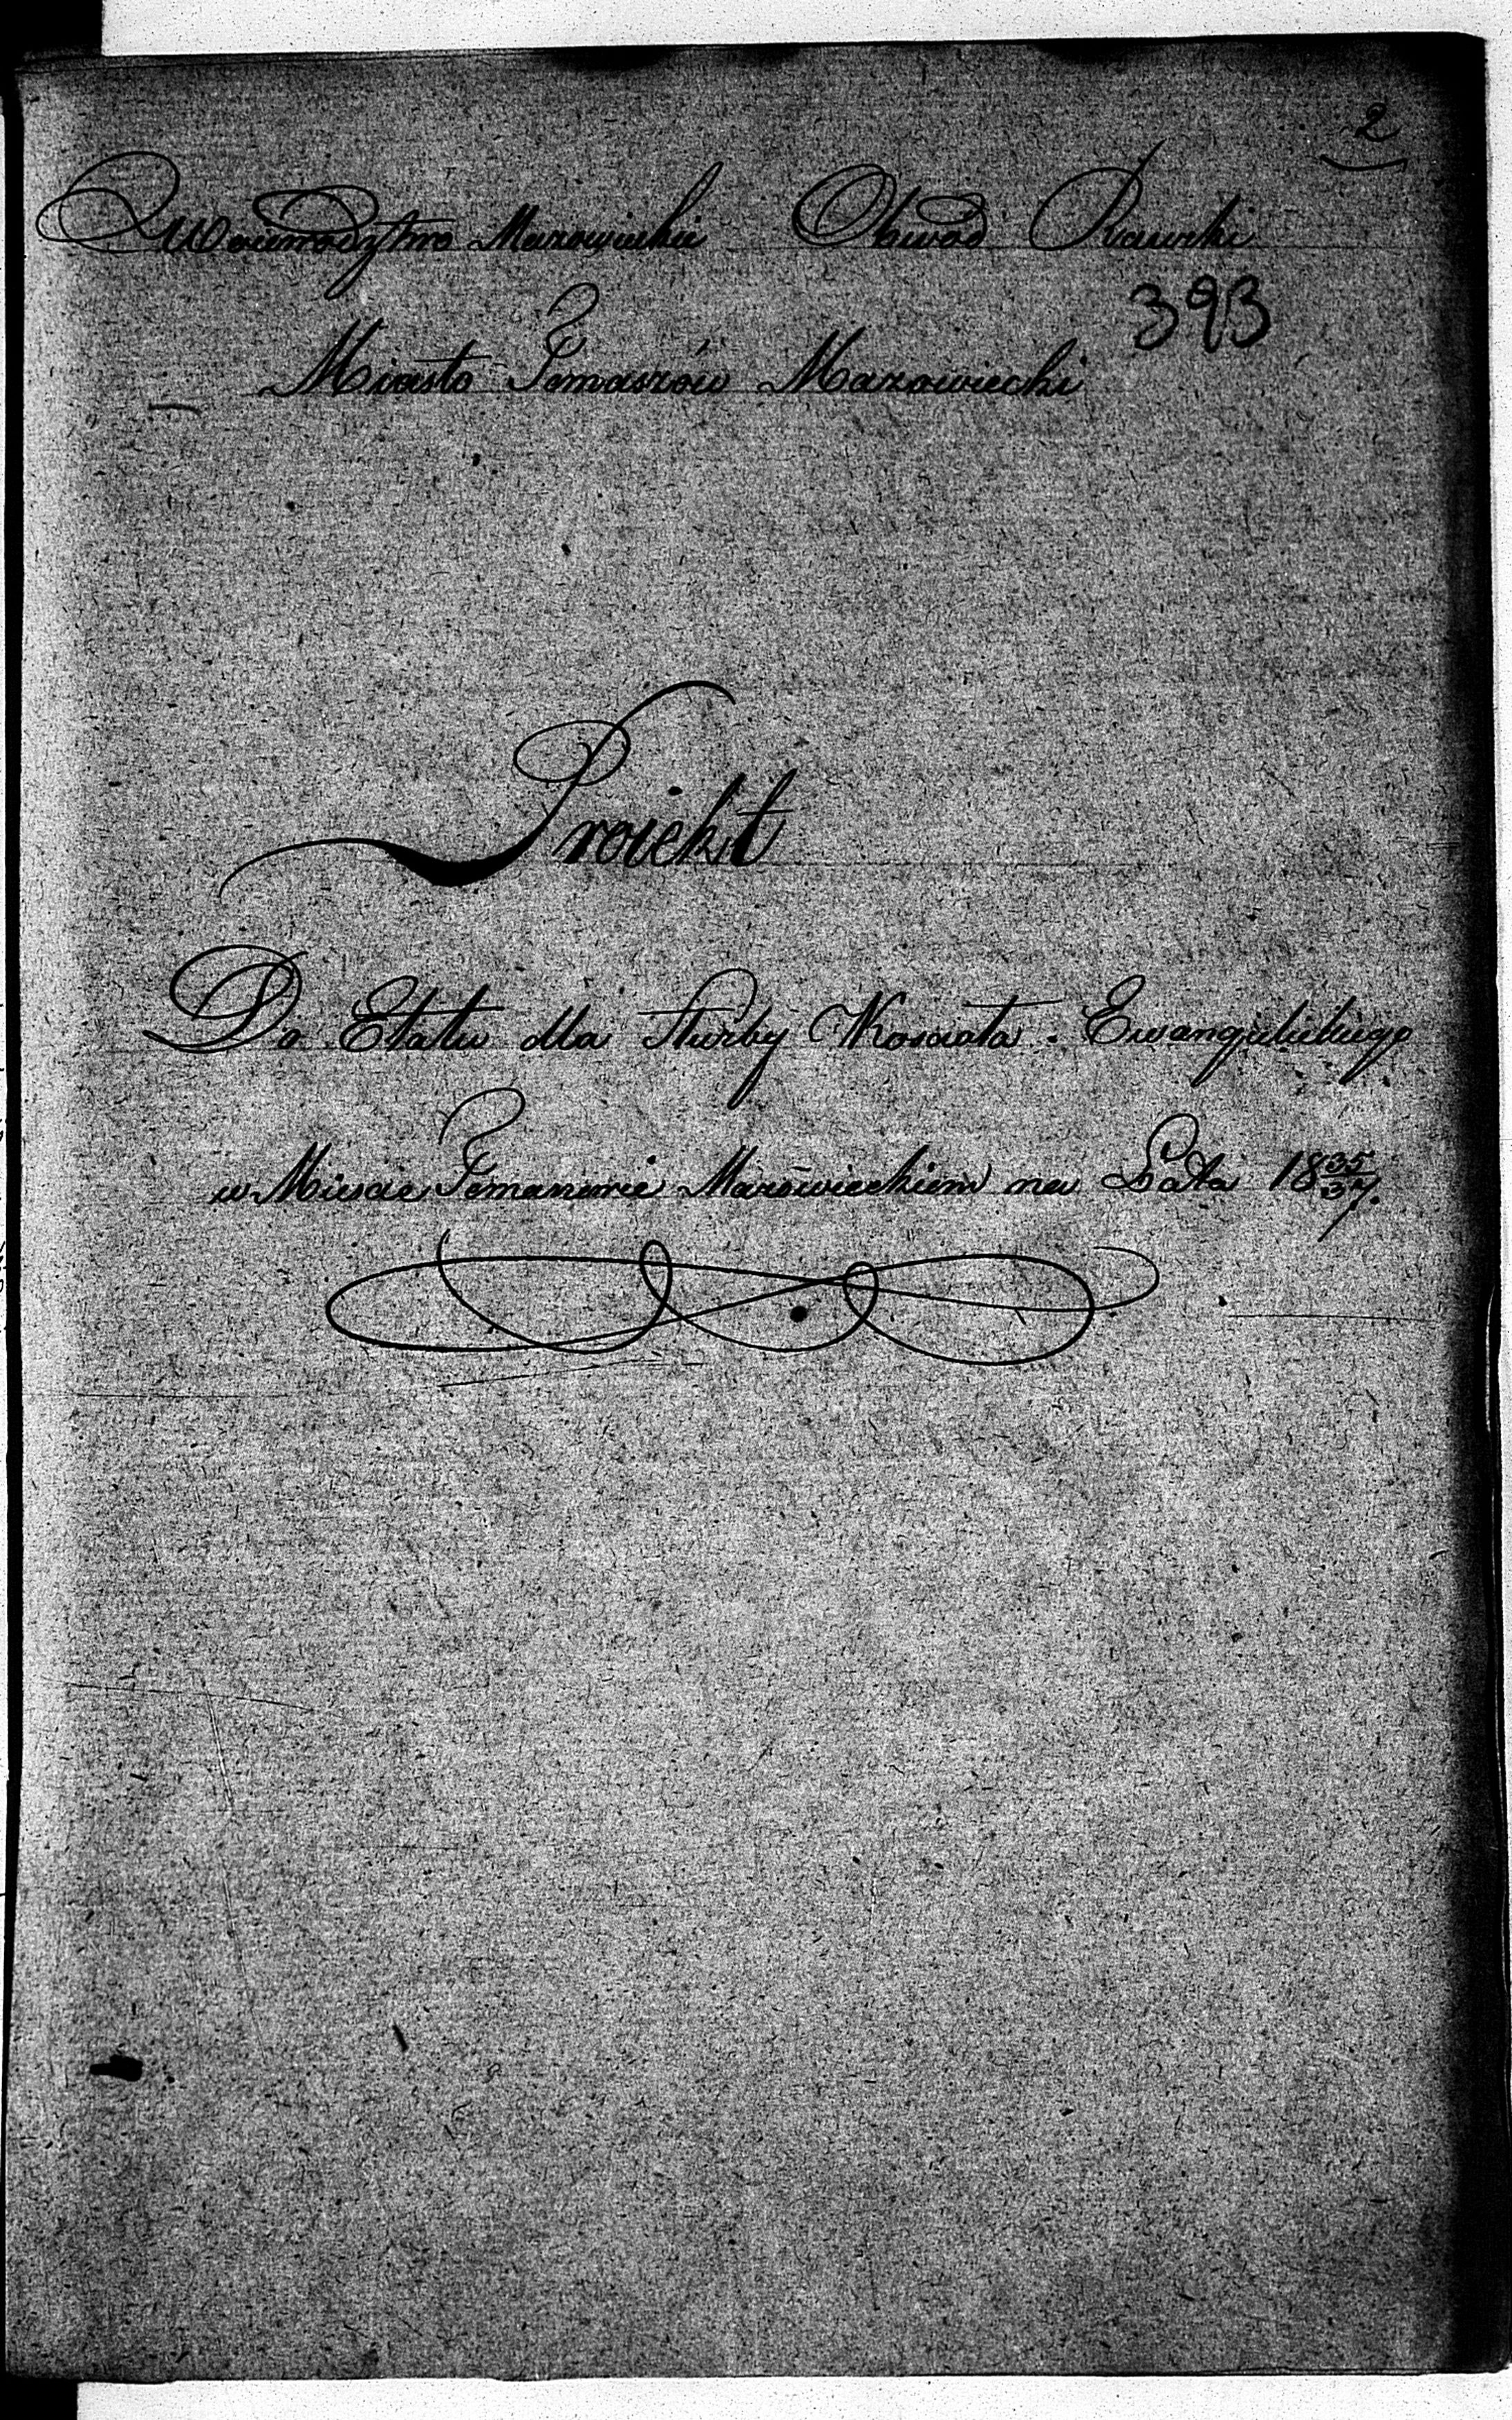 2
Woiewodztwo Mazowieckie Obwod Rawski
393
Miasto Tomaszów Mazowiecki
Proiekt
Do Etatu dla Służby Koscioła Ewangielickiego
w Miescie Tomaszowie Mazowieckiem na Lata 18 35/37.